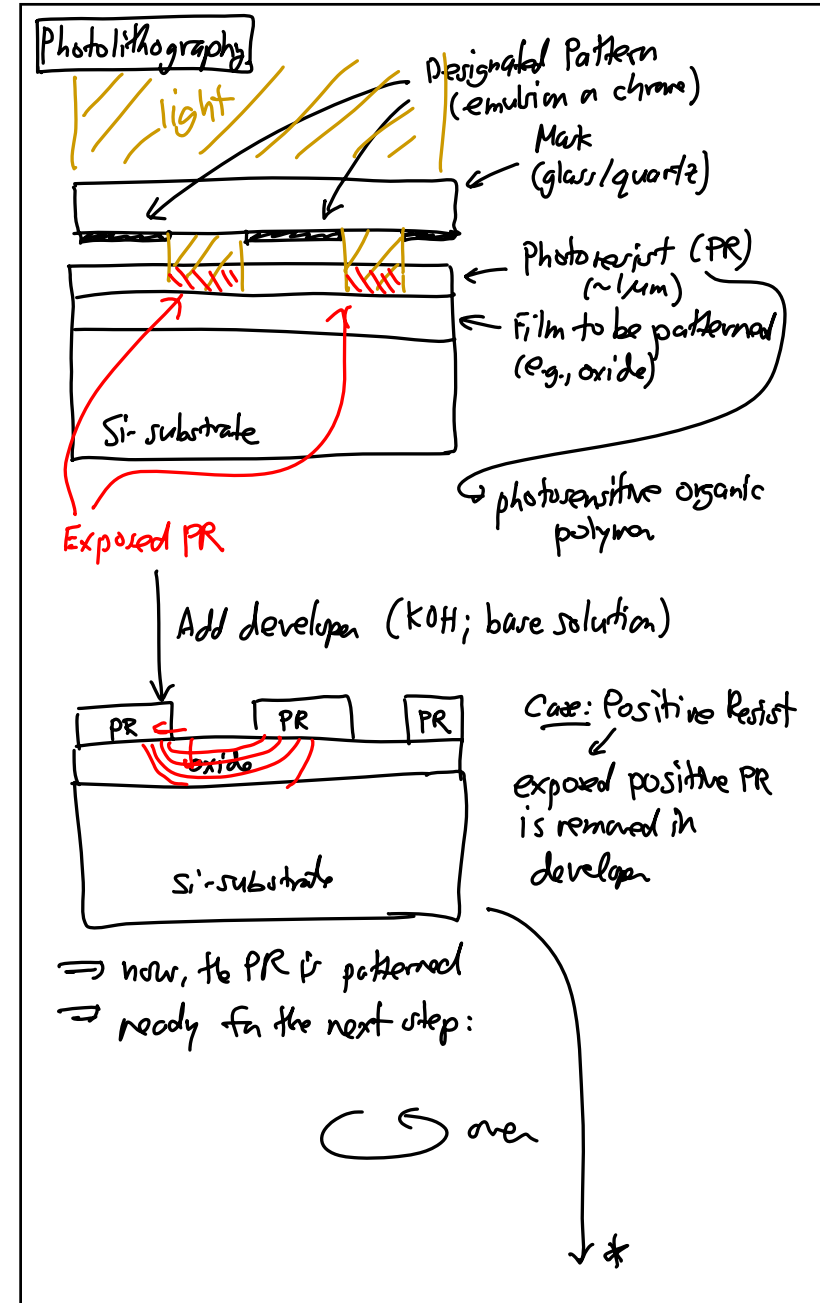 Photolithography
light
Designated Pattern
(emulsion or chrome)
Mask
(glass/quartz)
Photoresist (PR)
(~1μm)
Film to be patterned
(e.g., oxide)
Si-substrate
photosensitive organic
polymer
Exposed PR
Add developer (KOH; base solution)
PR
PR
PR
oxide
Si-substrate
Case: Positive Resist
exposed positive PR
is removed in
developer
⇒ now, the PR is patterned
⇒ ready for the next step:
over
*